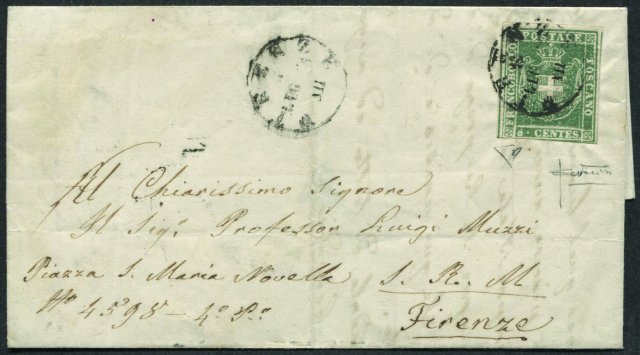 FIRENZE
FRANCOBOLLO POSTALE TOSCANO
CENTES
Al Chiarissimo Signore
Il Sig.r Professor Luigi Muzzi
Piazza S. Maria Novella S. R. M.
No 4598 - 4o Po
Firenze